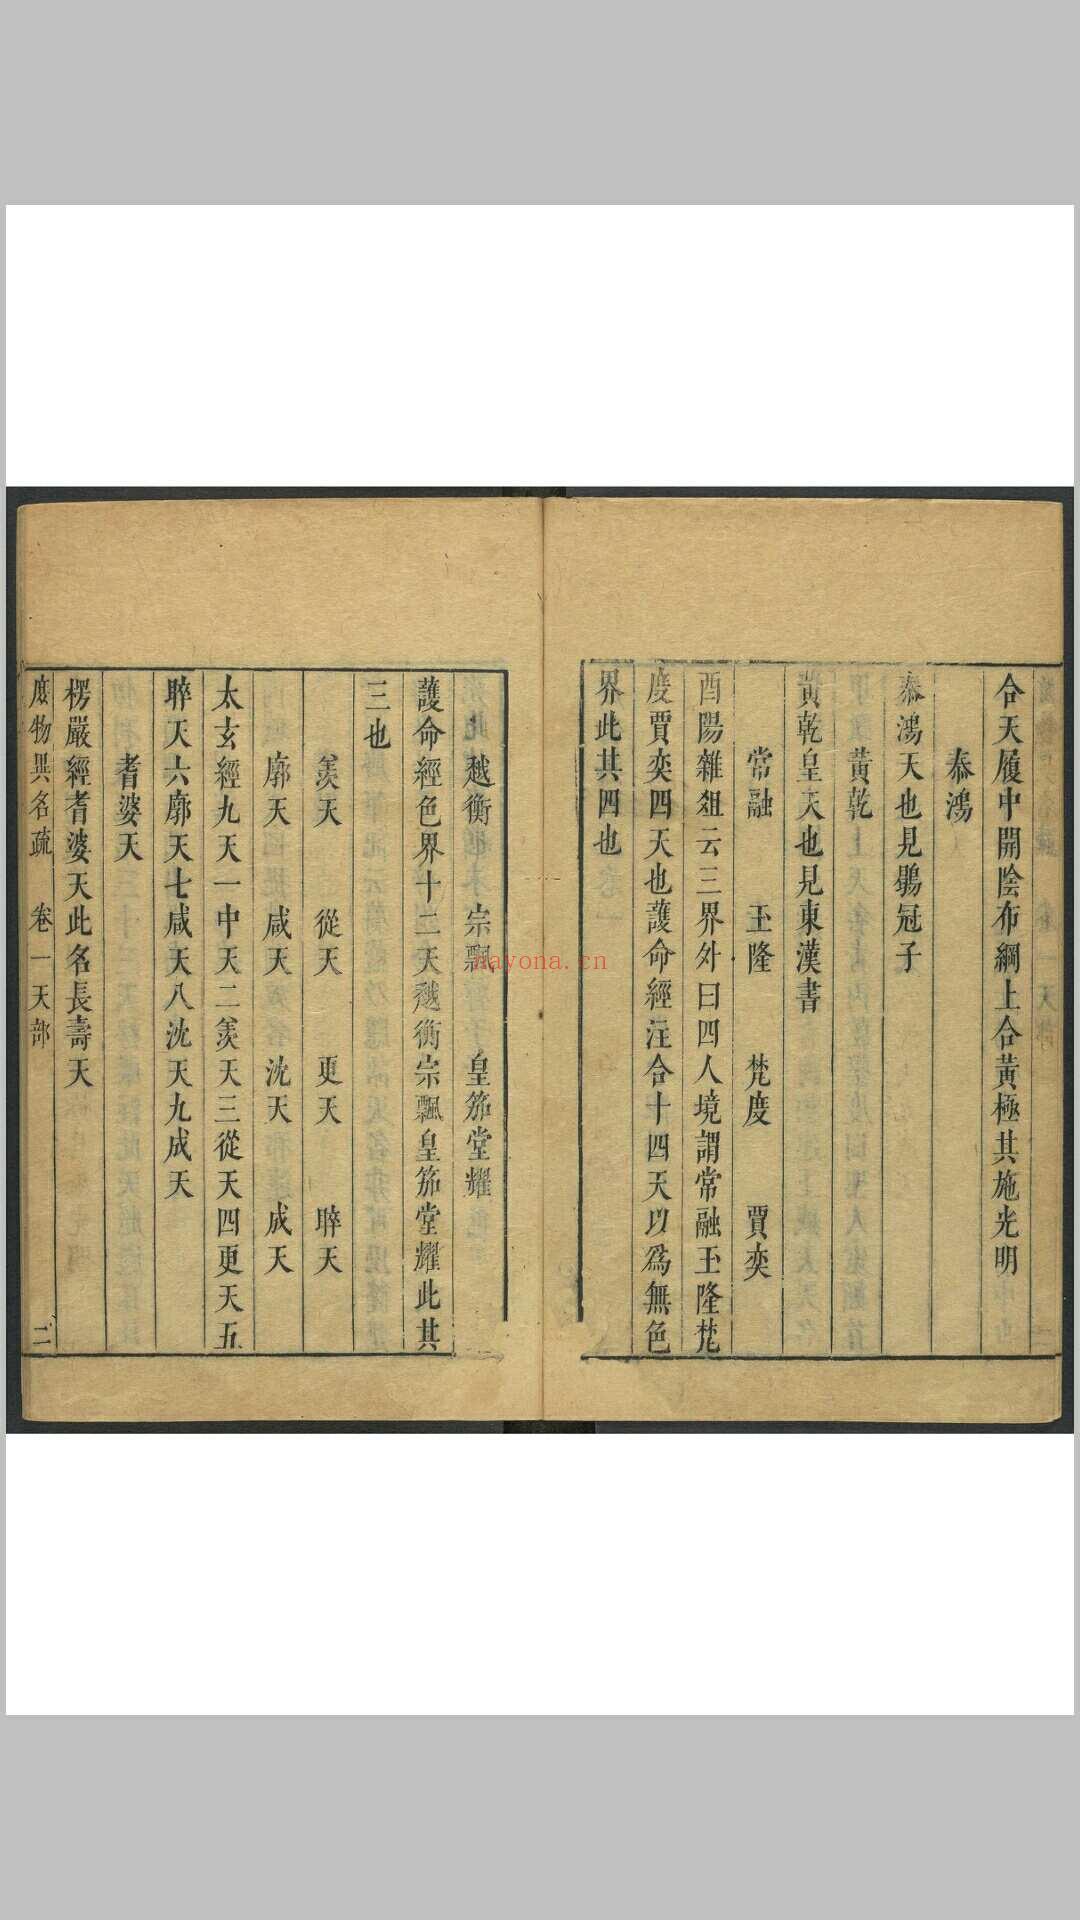 合天履中開陰布綱上合黃極其施光明
泰鴻
泰鴻天也見鶡冠子
黃乾
黃乾皇天也見東漢書
常融 玉隆 梵度 賈奕
酉陽雜俎云三界外曰四人境謂常融玉隆梵
度賈奕四天也護命經注合十四天以為無色
界此其四也
越衡 宗飄 皇笳堂耀
護命經色界十二天越衡宗飄皇笳堂耀此其
三也
羨天 從天 更天 睟天
廓天 咸天 沈天 成天
太玄經九天一中天二羨天三從天四更天五
睟天六廓天七咸天八沈天九成天
耆婆天
楞嚴經耆婆天此名長壽天
庶物異名疏 卷一天部 二
nayona.cn